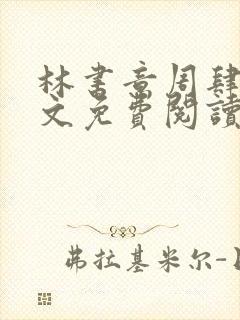 林书音周肆
文免費閱讀
弗拉基米尔-